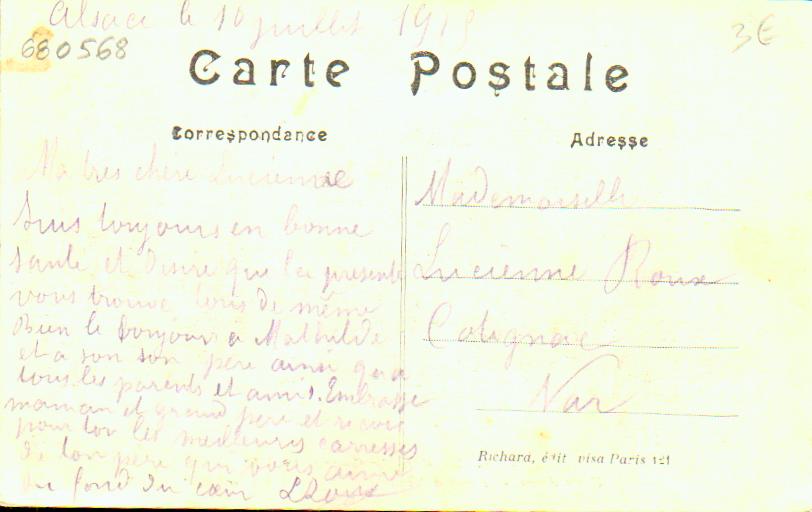 Alsace le 16 juillet 1915
680568
3€
Carte Postale
Correspondance
Adresse
Ma tres chère Lucienne
Suis toujours en bonne
sante et Desire que la presente
vous trouve tous de même
Bien le bonjour a Mathilde
et a son son père ainsi qu'a
tous les parents et amis. Embrasse
maman et grand père et reçois
pour toi les meilleures caresses
de ton père qui vous aime
du fond du cœur LRoux
Mademoiselle
Lucienne Roux
Cotignac
Var
Richard, édit visa Paris 121